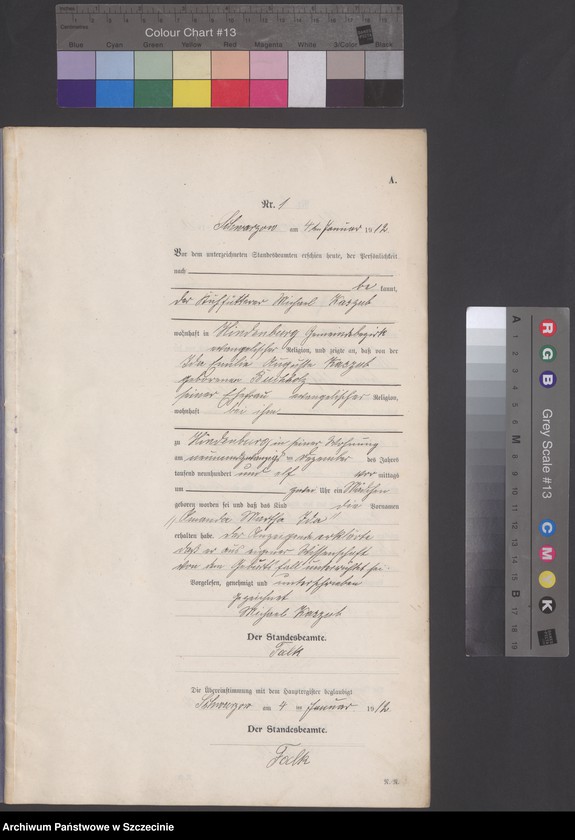 Colour Chart #13
Blue Cyan Green Yellow Red Magenta White 3/Color Black
A.
Nr. 1
am 4ten Januar 1912
Vor dem unterzeichneten Standesbeamten erschien heute, der Persönlichkeit
nach
be kannt,
der Michael Kaszub
wohnhaft in Hindenburg Gemeindebezirk
evangelischer Religion, und zeigte an, daß von der
Ida Emilie Auguste Kaszub
geborenen Buchholz
seiner Ehefrau evangelischer Religion,
wohnhaft bei ihm
zu Hindenburg in seiner Wohnung
am neunundzwanzigsten Dezember des Jahres
tausend neunhundert und elf vor mittags
um Uhr ein Mädchen
geboren worden sei und daß das Kind die Vornamen
Amanda Martha Ida
erhalten habe. Der Anzeigende erklärte
daß er aus eigener Wissenschaft
von dem Geburtsfall unterrichtet sei.
Vorgelesen, genehmigt und unterschrieben
gezeichnet
Michael Kaszub
Der Standesbeamte.
Falk
Die Übereinstimmung mit dem Hauptregister beglaubigt
am 4 ten Januar 1912
Der Standesbeamte.
Falk
Grey Scale #13
R
G
B
C
M
Y
K
Archiwum Państwowe w Szczecinie